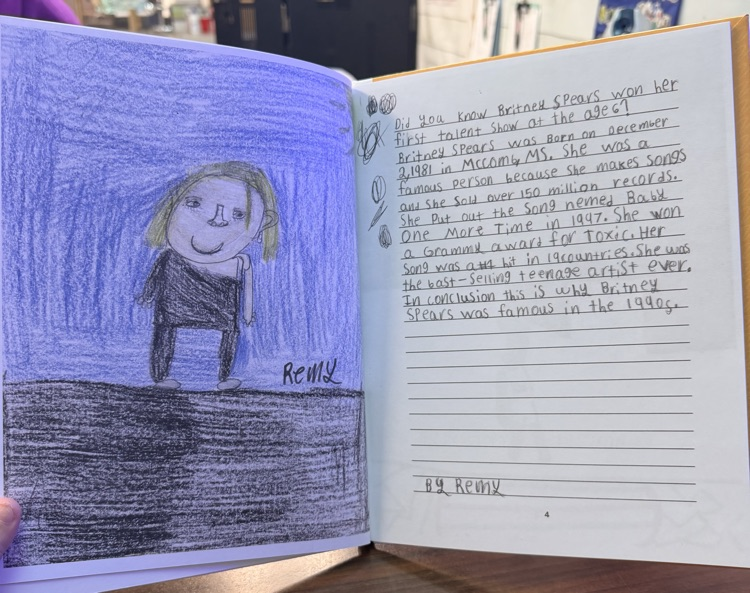 Remy
Did you know Britney Spears won her
first talent show at the age 6?
Britney Spears was Born on December
2,1981 in Mccomb, MS. She was a
famous person because she makes songs
and she sold over 150 million records.
She Put out the song nemed Baby
One More Time in 1997. She won
a Grammy award for Toxic. Her
song was a #1 hit in 19countries. She was
the bast-selling teenage artist ever.
In conclusion this is why Britney
Spears was famous in the 1990s.
By Remy
4